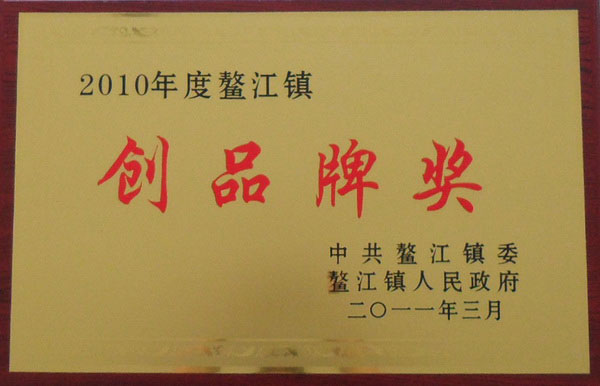 2010年度鳌江镇
创品牌奖
中共鳌江镇委
鳌江镇人民政府
二〇一一年三月